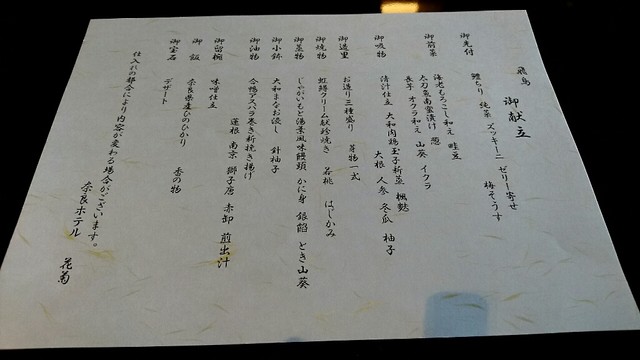 飛鳥
御献立
御先付
鱧ちり 純菜 ズッキーニ ゼリー寄せ
梅そうす
御前菜
海老もろこし和え 畦豆
太刀魚南蛮漬け 葱
長芋 オクラ和え 山葵 イクラ
御吸物
清汁仕立 大和肉鶏玉子新蒸 楓麩
大根 人参 冬瓜 柚子
御造里
お造り三種盛り 芽物一式
御焼物
虹鱒クリーム献珍焼き 若桃 はじかみ
御蒸物
じゃがいもと湯葉風味饅頭 かに身 銀餡 とき山葵
御小鉢
大和まなお浸し 針柚子
御油物
合鴨アスパラ巻き新挽き揚げ
蓮根 南京 獅子唐 赤卸 煎出汁
御留椀
味噌仕立
御飯
奈良県産ひのひかり 香の物
御宝石
デザート
仕入れの都合により内容が変わる場合がございます。
奈良ホテル 花菊